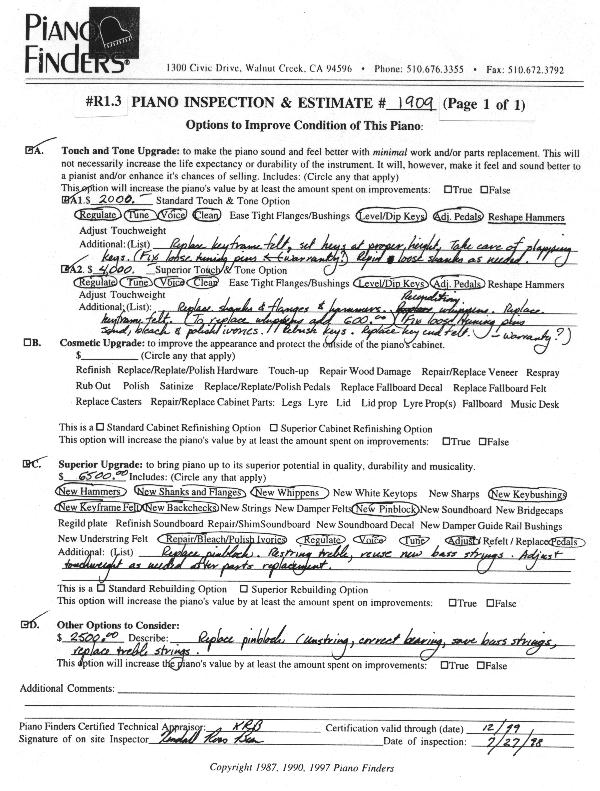 PIANO
FINDERS®
1300 Civic Drive, Walnut Creek, CA 94596 • Phone: 510.676.3355 • Fax: 510.672.3792
#R1.3 PIANO INSPECTION & ESTIMATE # 1909 (Page 1 of 1)
Options to Improve Condition of This Piano:
A. Touch and Tone Upgrade: to make the piano sound and feel better with minimal work and/or parts replacement. This will
not necessarily increase the life expectancy or durability of the instrument. It will, however, make it feel and sound better to
a pianist and/or enhance it's chances of selling. Includes: (Circle any that apply)
This option will increase the piano's value by at least the amount spent on improvements: ☐True ☐False
A1.$ 2000.- Standard Touch & Tone Option
Regulate Tune Voice Clean Ease Tight Flanges/Bushings Level/Dip Keys Adj. Pedals Reshape Hammers
Adjust Touchweight
Additional: (List) Replace keyframe felt, set keys at proper height, Take care of flapping
keys. (Fix loose tuning pins & (warranty?) Repin loose shanks as needed.
A2. $ 4,000. Superior Touch & Tone Option
Regulate Tune Voice Clean Ease Tight Flanges/Bushings Level/Dip Keys Adj. Pedals Reshape Hammers
Adjust Touchweight
Additional: (List): Replace shanks & flanges & hammers. Recondition whippens. Replace
keyframe felt. (To replace whippens add 600.00) (Fix loose tuning pins
Sand, bleach & polish ivories. Rebush keys. Replace key end felt. - warranty?)
☐B. Cosmetic Upgrade: to improve the appearance and protect the outside of the piano's cabinet.
$ (Circle any that apply)
Refinish Replace/Replate/Polish Hardware Touch-up Repair Wood Damage Repair/Replace Veneer Respray
Rub Out Polish Satinize Replace/Replate/Polish Pedals Replace Fallboard Decal Replace Fallboard Felt
Replace Casters Repair/Replace Cabinet Parts: Legs Lyre Lid Lid prop Lyre Prop(s) Fallboard Music Desk
This is a ☐ Standard Cabinet Refinishing Option ☐ Superior Cabinet Refinishing Option
This option will increase the piano's value by at least the amount spent on improvements: ☐True ☐False
C. Superior Upgrade: to bring piano up to its superior potential in quality, durability and musicality.
$ 6500.00 Includes: (Circle any that apply)
New Hammers New Shanks and Flanges New Whippens New White Keytops New Sharps New Keybushings
New Keyframe Felt New Backchecks New Strings New Damper Felts New Pinblock New Soundboard New Bridgecaps
Regild plate Refinish Soundboard Repair/ShimSoundboard New Soundboard Decal New Damper Guide Rail Bushings
New Understring Felt Repair/Bleach/Polish Ivories Regulate Voice Tune Adjust/Refelt/Replace Pedals
Additional: (List) Replace pinblock. Restring treble, reuse new bass strings. Adjust
touchweight as needed after parts replacement.
This is a ☐ Standard Rebuilding Option ☐ Superior Rebuilding Option
This option will increase the piano's value by at least the amount spent on improvements: ☐True ☐False
D. Other Options to Consider:
$ 2500.00 Describe: Replace pinblock (unstring, correct bearing, save bass strings,
replace treble strings.
This option will increase the piano's value by at least the amount spent on improvements: ☐True ☐False
Additional Comments:
Piano Finders Certified Technical Appraisor: KRB Certification valid through (date) 12/99
Signature of on site Inspector Kendall Ross Bean Date of inspection: 7/27/98
Copyright 1987, 1990, 1997 Piano Finders